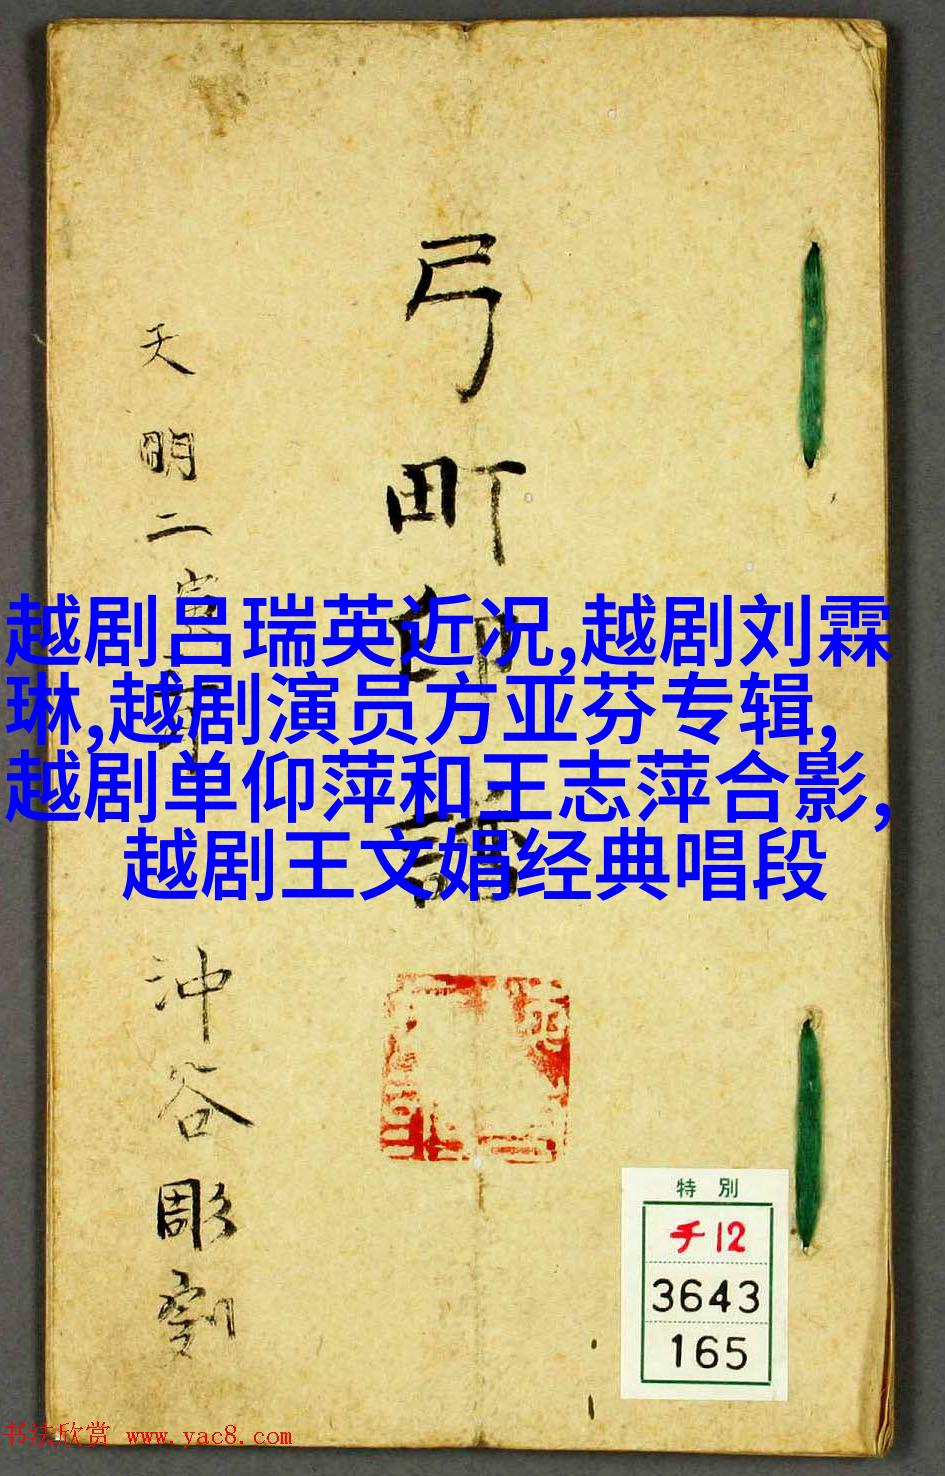 弓町印譜
天明二寅年
沖谷彫刻
越剧吕瑞英近况,越剧刘霖
琳,越剧演员方亚芬专辑,
越剧单仰萍和王志萍合影,
越剧王文娟经典唱段
特別
チ12
3643
165
书法欣赏 www.yac8.com